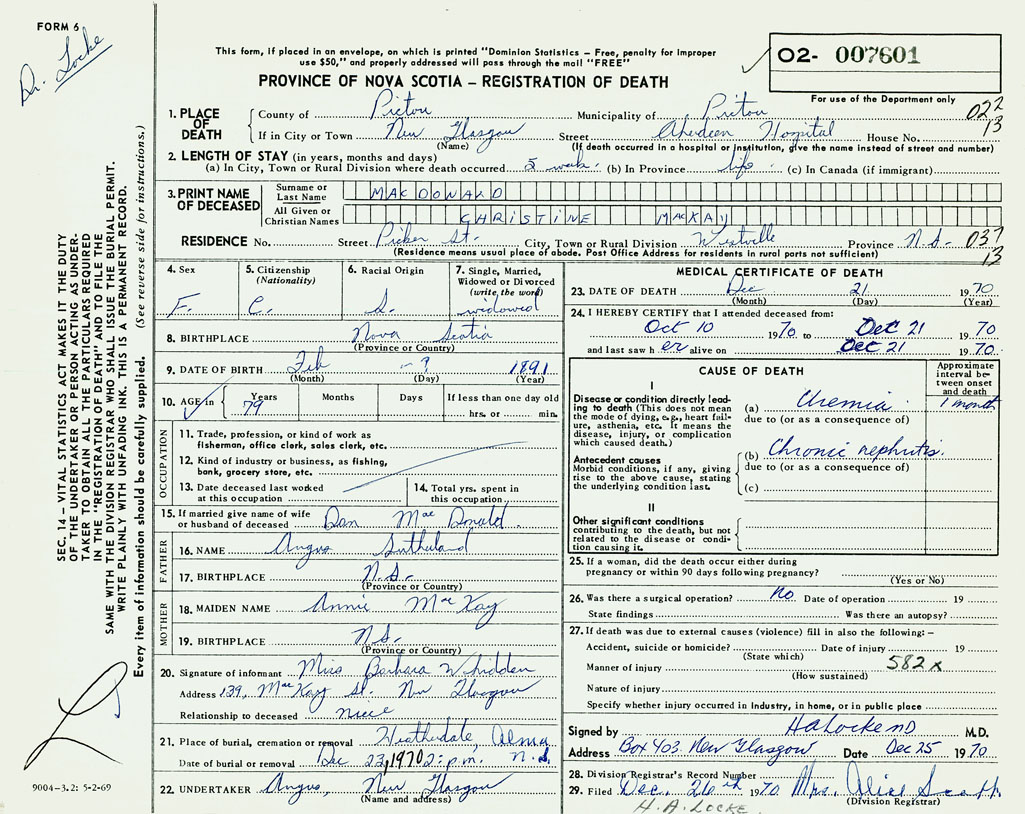 FORM 6
Dr. Locke
This form, if placed in an envelope, on which is printed "Dominion Statistics – Free, penalty for improper
use $50," and properly addressed will pass through the mail "FREE"
PROVINCE OF NOVA SCOTIA – REGISTRATION OF DEATH
O2- 007601
For use of the Department only
1. PLACE OF DEATH
County of Pictou Municipality of Pictou 022
13
If in City or Town New Glasgow Street Aberdeen Hospital House No.
(Name) (If death occurred in a hospital or institution, give the name instead of street and number)
2. LENGTH OF STAY (in years, months and days)
(a) In City, Town or Rural Division where death occurred 5 weeks (b) In Province life (c) In Canada (if immigrant)
3. PRINT NAME OF DECEASED
Surname or Last Name MACDONALD
All Given or Christian Names CHRISTINE MACKAY
RESIDENCE No. Street Picker St. City, Town or Rural Division Westville Province N.S. 037
13
(Residence means usual place of abode. Post Office Address for residents in rural parts not sufficient)
4. Sex
F.
5. Citizenship
(Nationality)
C.
6. Racial Origin
S.
7. Single, Married,
Widowed or Divorced
(write the word)
widowed
8. BIRTHPLACE Nova Scotia
(Province or Country)
9. DATE OF BIRTH Feb - ? 1891
(Month) (Day) (Year)
10. AGE in Years Months Days If less than one day old
79 hrs. or min.
OCCUPATION
11. Trade, profession, or kind of work as
fisherman, office clerk, sales clerk, etc.
12. Kind of industry or business, as fishing,
bank, grocery store, etc.
13. Date deceased last worked
at this occupation
14. Total yrs. spent in
this occupation
15. If married give name of wife
or husband of deceased Dan MacDonald
FATHER
16. NAME Angus Sutherland
17. BIRTHPLACE N.S.
(Province or Country)
MOTHER
18. MAIDEN NAME Annie MacKay
19. BIRTHPLACE N.S.
(Province or Country)
20. Signature of informant Miss Barbara Whidden
Address 139, MacKay St. New Glasgow
Relationship to deceased niece
21. Place of burial, cremation or removal Heatherdale, Alma
N.S.
Date of burial or removal Dec 23, 1970 2: p.m.
22. UNDERTAKER Angus, New Glasgow
(Name and address)
MEDICAL CERTIFICATE OF DEATH
23. DATE OF DEATH Dec 21 1970
(Month) (Day) (Year)
24. I HEREBY CERTIFY that I attended deceased from:
Oct 10 1970 to Dec 21 1970
and last saw her alive on Dec 21 1970
CAUSE OF DEATH
Approximate
interval be-
tween onset
and death
I
Disease or condition directly lead-
ing to death (This does not mean
the mode of dying, e.g., heart fail-
ure, asthenia, etc. It means the
disease, injury, or complication
which caused death.)
(a) Uremia 1 month
due to (or as a consequence of)
Antecedent causes
Morbid conditions, if any, giving
rise to the above cause, stating
the underlying condition last.
(b) Chronic nephritis.
due to (or as a consequence of)
(c)
II
Other significant conditions
contributing to the death, but not
related to the disease or condi-
tion causing it.
25. If a woman, did the death occur either during
pregnancy or within 90 days following pregnancy?
(Yes or No)
26. Was there a surgical operation? No Date of operation 19
State findings Was there an autopsy?
27. If death was due to external causes (violence) fill in also the following:–
Accident, suicide or homicide? Date of injury 19
(State which)
Manner of injury 582x
(How sustained)
Nature of injury
Specify whether injury occurred in industry, in home, or in public place
Signed by HA Locke MD M.D.
Address Box 403. New Glasgow Date Dec 25 1970.
28. Division Registrar's Record Number
29. Filed Dec. 26th 1970 Mrs. Alice Scott
(Division Registrar)
H.A. LOCKE
SEC. 14 – VITAL STATISTICS ACT MAKES IT THE DUTY
OF THE UNDERTAKER OR PERSON ACTING AS UNDER-
TAKER TO OBTAIN ALL THE PARTICULARS REQUIRED
IN THE "REGISTRATION OF DEATH" AND TO FILE THE
SAME WITH THE DIVISION REGISTRAR WHO SHALL ISSUE THE BURIAL PERMIT.
WRITE PLAINLY WITH UNFADING INK. THIS IS A PERMANENT RECORD.
Every item of information should be carefully supplied. (See reverse side for instructions.)
9004-3.2: 5-2-69